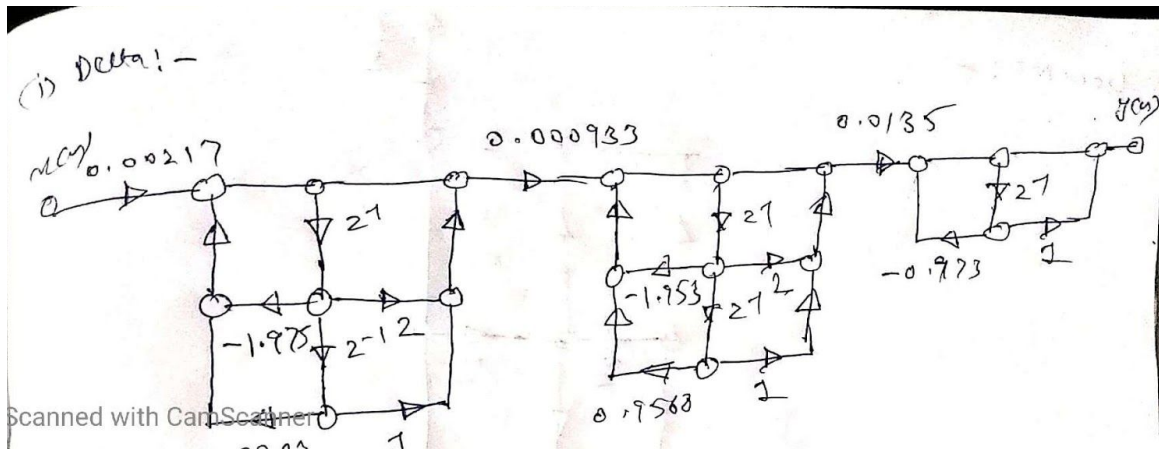 (i) Delta:-
x(n) 0.00217
0.000933
0.0135
y(n)
z-1
z-1
z-1
-1.975
z-1 2
-1.953
2
z-1
-0.973
1
1
0.9563
1
Scanned with CamScanner